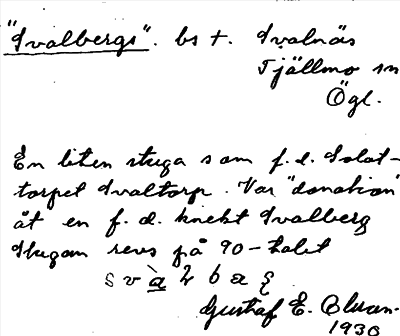 "Svalbergs". bs t. Svalnäs
Tjällmo sn
Ögl.
En liten stuga som f.d. Soldat-
torpet Svaltorp. Var "donation"
åt en f.d. knekt Svalberg
Stugan revs på 90-talet
Gustaf E. Olsson.
1930